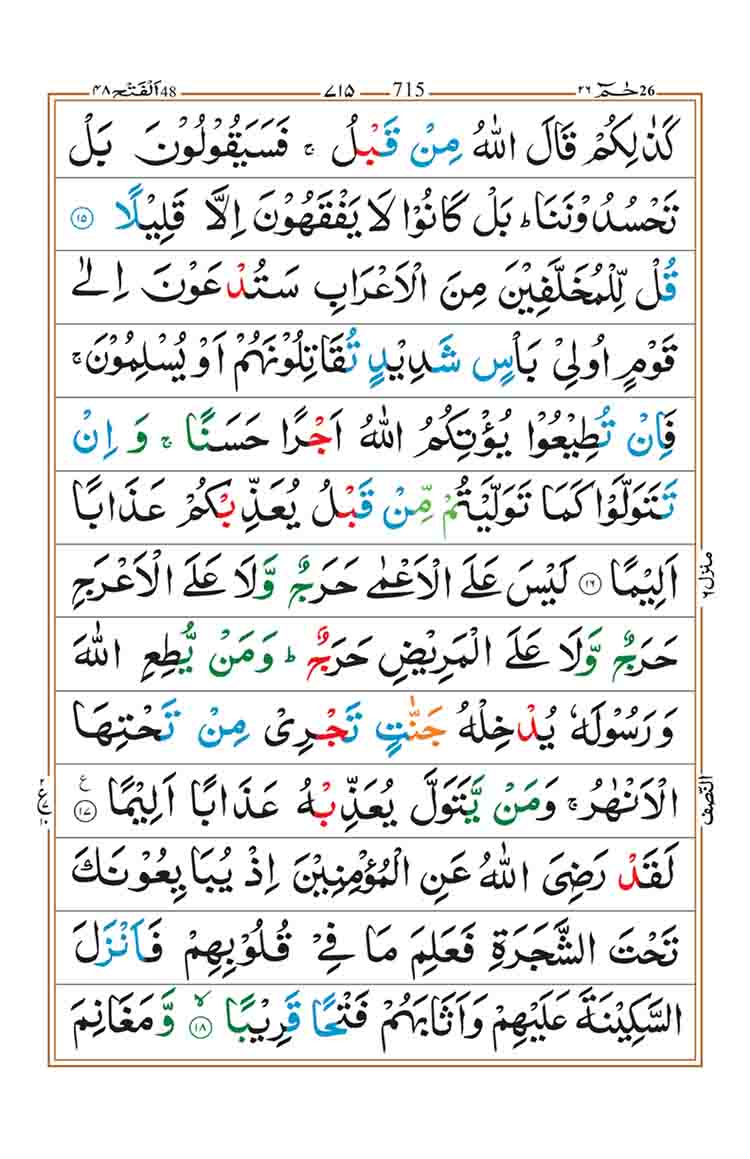 حٰمٓ 26 ۲۶ — 715 — ۷۱۵ — 48 اَلْفَتْح ۴۸
كَذٰلِكُمْ قَالَ اللّٰهُ مِنْ قَبْلُ ۚ فَسَيَقُوْلُوْنَ بَلْ
تَحْسُدُوْنَنَا ؕ بَلْ كَانُوْا لَا يَفْقَهُوْنَ اِلَّا قَلِيْلًا ۝۱۵
قُلْ لِّلْمُخَلَّفِيْنَ مِنَ الْاَعْرَابِ سَتُدْعَوْنَ اِلٰى
قَوْمٍ اُولِيْ بَاْسٍ شَدِيْدٍ تُقَاتِلُوْنَهُمْ اَوْ يُسْلِمُوْنَ ۚ
فَاِنْ تُطِيْعُوْا يُؤْتِكُمُ اللّٰهُ اَجْرًا حَسَنًا ۚ وَ اِنْ
تَتَوَلَّوْا كَمَا تَوَلَّيْتُمْ مِّنْ قَبْلُ يُعَذِّبْكُمْ عَذَابًا
اَلِيْمًا ۝۱۶ لَيْسَ عَلَى الْاَعْمٰى حَرَجٌ وَّلَا عَلَى الْاَعْرَجِ
منزل ۶
حَرَجٌ وَّلَا عَلَى الْمَرِيْضِ حَرَجٌ ؕ وَمَنْ يُّطِعِ اللّٰهَ
وَرَسُوْلَهٗ يُدْخِلْهُ جَنّٰتٍ تَجْرِيْ مِنْ تَحْتِهَا
النّصف
الْاَنْهٰرُ ۚ وَمَنْ يَّتَوَلَّ يُعَذِّبْهُ عَذَابًا اَلِيْمًا ۝۱۷ ع
لَقَدْ رَضِيَ اللّٰهُ عَنِ الْمُؤْمِنِيْنَ اِذْ يُبَايِعُوْنَكَ
تَحْتَ الشَّجَرَةِ فَعَلِمَ مَا فِيْ قُلُوْبِهِمْ فَاَنْزَلَ
السَّكِيْنَةَ عَلَيْهِمْ وَاَثَابَهُمْ فَتْحًا قَرِيْبًا ۝۱۸ ۙ وَّمَغَانِمَ